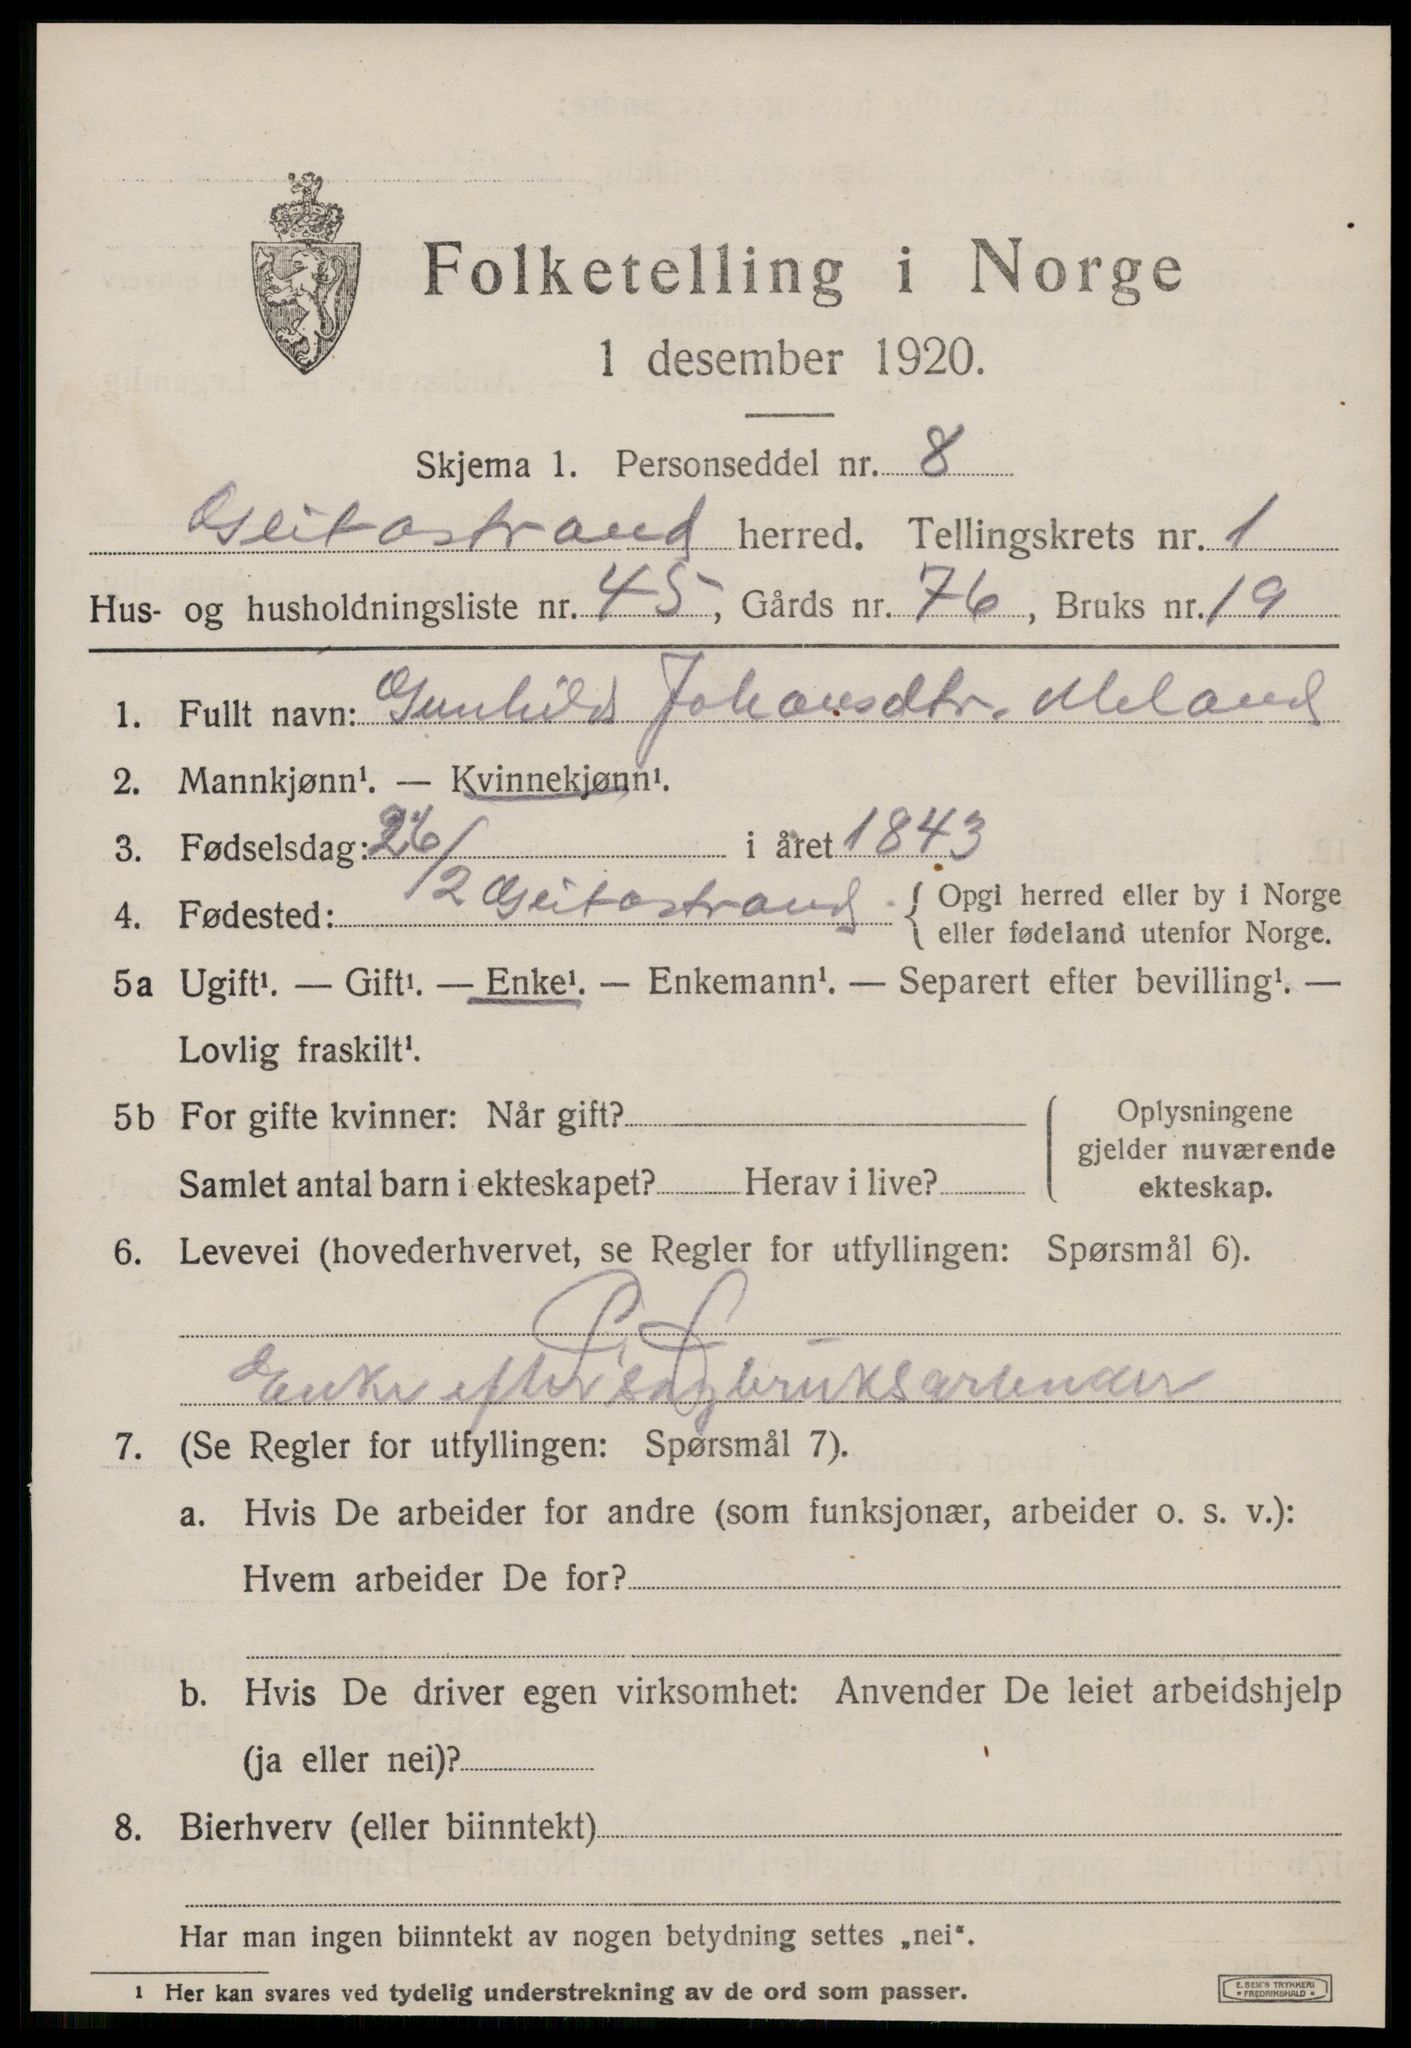 Folketelling i Norge
1 desember 1920.
Skjema 1. Personseddel nr. 8
Geitastrand herred. Tellingskrets nr. 1
Hus- og husholdningsliste nr. 45, Gårds nr. 76, Bruks nr. 19
1. Fullt navn: Gunhild Johansdtr. Meland
2. Mannkjønn¹. — Kvinnekjønn¹.
3. Fødselsdag: 26/2 i året 1843
4. Fødested: Geitastrand { Opgi herred eller by i Norge
eller fødeland utenfor Norge.
5a Ugift¹. — Gift¹. — Enke¹. — Enkemann¹. — Separert efter bevilling¹. —
Lovlig fraskilt¹.
5b For gifte kvinner: Når gift?
Samlet antal barn i ekteskapet? Herav i live?
Oplysningene
gjelder nuværende
ekteskap.
6. Levevei (hovederhvervet, se Regler for utfyllingen: Spørsmål 6).
Enke efter sagbruksarbeider
7. (Se Regler for utfyllingen: Spørsmål 7).
a. Hvis De arbeider for andre (som funksjonær, arbeider o. s. v.):
Hvem arbeider De for?
b. Hvis De driver egen virksomhet: Anvender De leiet arbeidshjelp
(ja eller nei)?
8. Bierhverv (eller biinntekt)
Har man ingen biinntekt av nogen betydning settes „nei“.
¹ Her kan svares ved tydelig understrekning av de ord som passer.
E. SEM'S TRYKKERI
* FREDRIKSHALD *